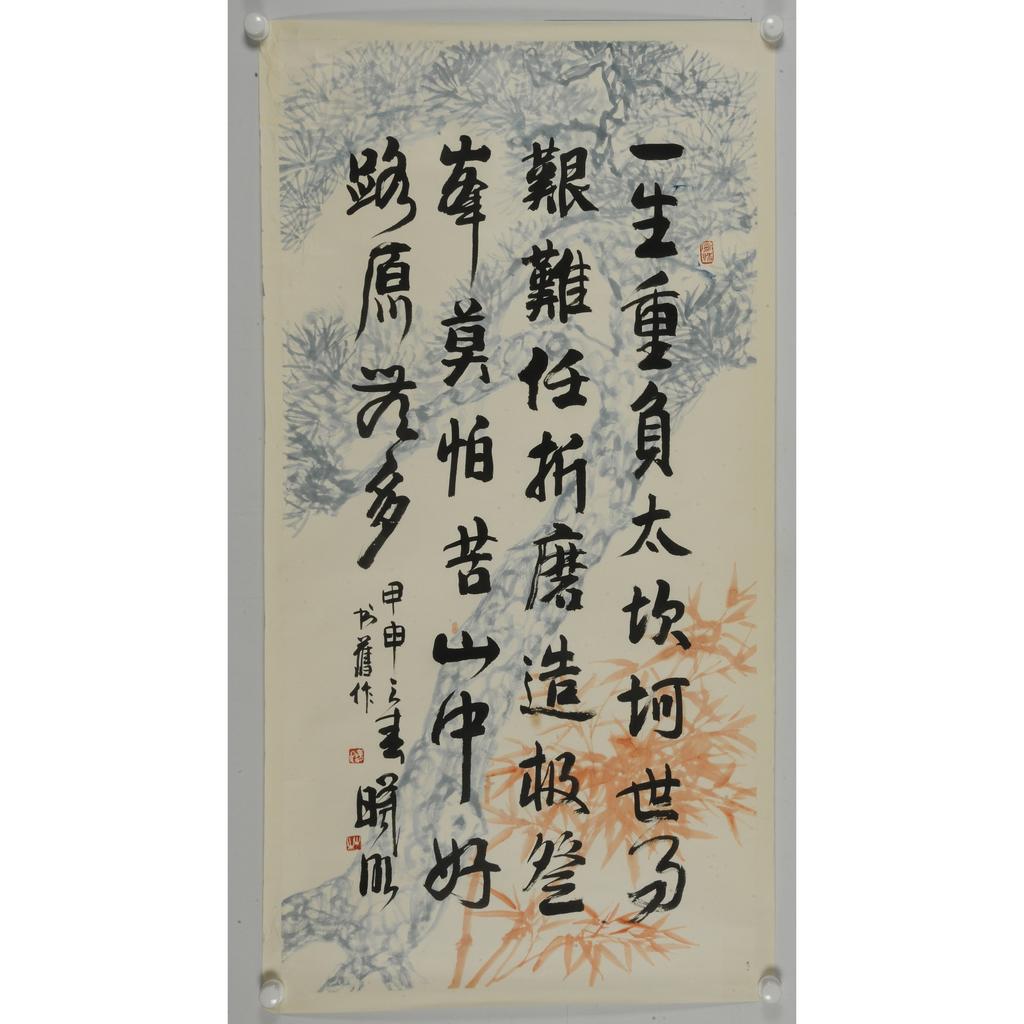 一生重負太坎坷世事
艱難任折磨造極登
峯莫怕苦山中好
路原無多
甲申之春
书舊作